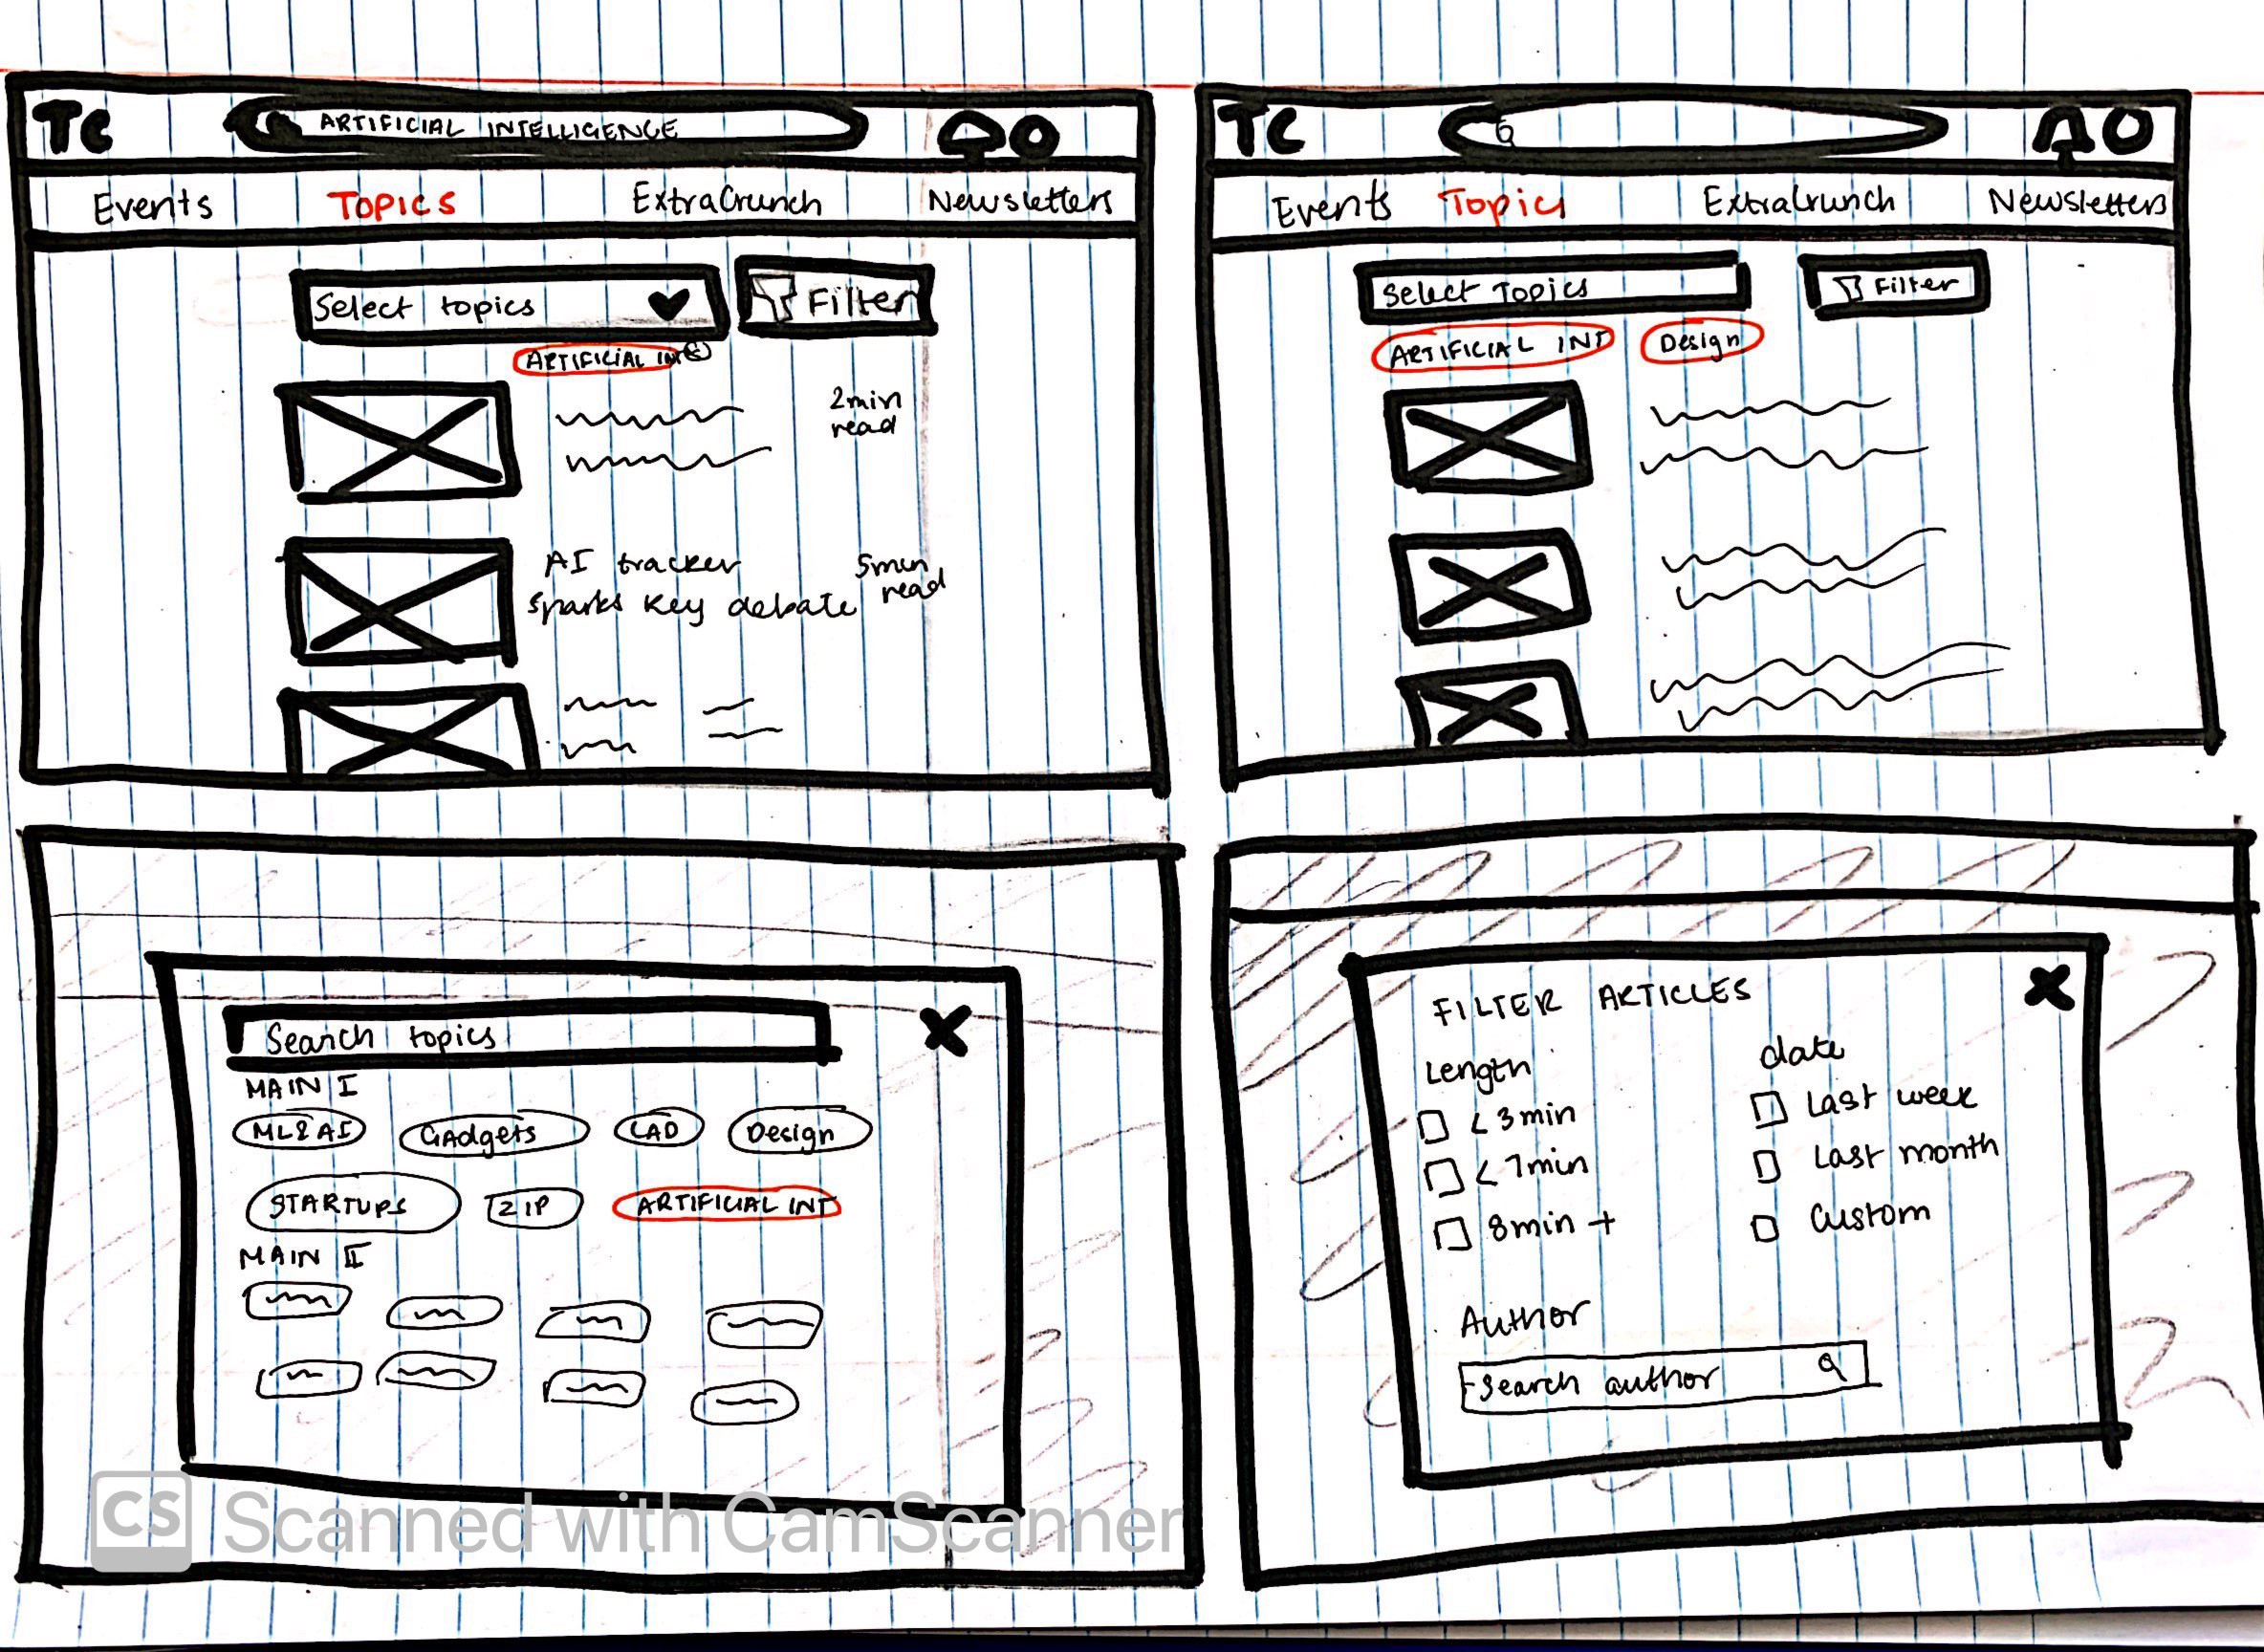 TC
ARTIFICIAL INTELLIGENCE
Events TOPICS ExtraCrunch Newsletters
Select topics Filter
ARTIFICIAL INT
2min
read
AI tracker
sparks key debate
5min
read
TC
Events Topics ExtraCrunch Newsletters
Select Topics Filter
ARTIFICIAL INT Design
Search topics X
MAIN I
ML&AI GAdgets CAD Design
STARTUPS ZIP ARTIFICIAL INT
MAIN II
FILTER ARTICLES X
Length
< 3min
< 7min
8min +
date
Last week
Last month
Custom
Author
Search author
CS Scanned with CamScanner